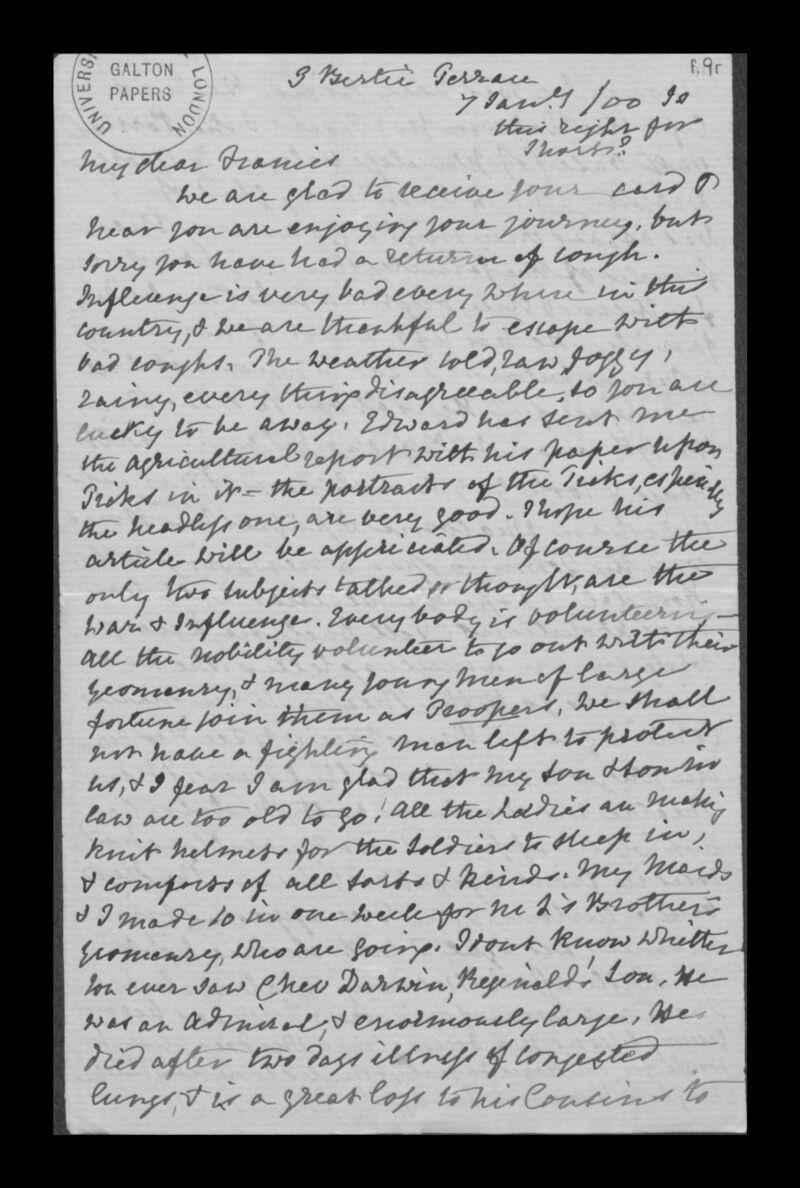 UNIVERSI LONDON
GALTON
PAPERS
f.9r
3 Bertie Terrace
7 Jany /00 Is
this right for
short?
My dear Francis
We are glad to receive your card &
hear you are enjoying your journey, but
sorry you have had a return of cough.
Influenza is very bad every where in this
country, & we are thankful to escape with
bad coughs. The weather cold, raw, foggy,
rainy, every thing disagreeable, so you are
lucky to be away. Edward has sent me
the Agricultural report with his paper upon
Ticks in it – the portraits of the Ticks, especially
the headless one, are very good. I hope his
article will be appreciated. Of course the
only two subjects talked or thought, are the
War & Influenza. Every body is volunteering –
All the nobility volunteer to go out with their
Yeomanry, & many young men of large
fortune join them as Troopers. We shall
not have a fighting man left to protect
us, & I fear I am glad that my Son & Son in
law are too old to go! All the Ladies are making
Knit helmets for the Soldiers to sleep in,
& comforts of all sorts & kinds. My Maids
& I made 10 in one week for Brother's
Yeomanry, who are going. I dont know whether
you ever saw Darwin, Reginald's Son, He
was an Admiral, & enormously large, He
died after two days illness of congested
lungs, & is a great loss to his Cousins to